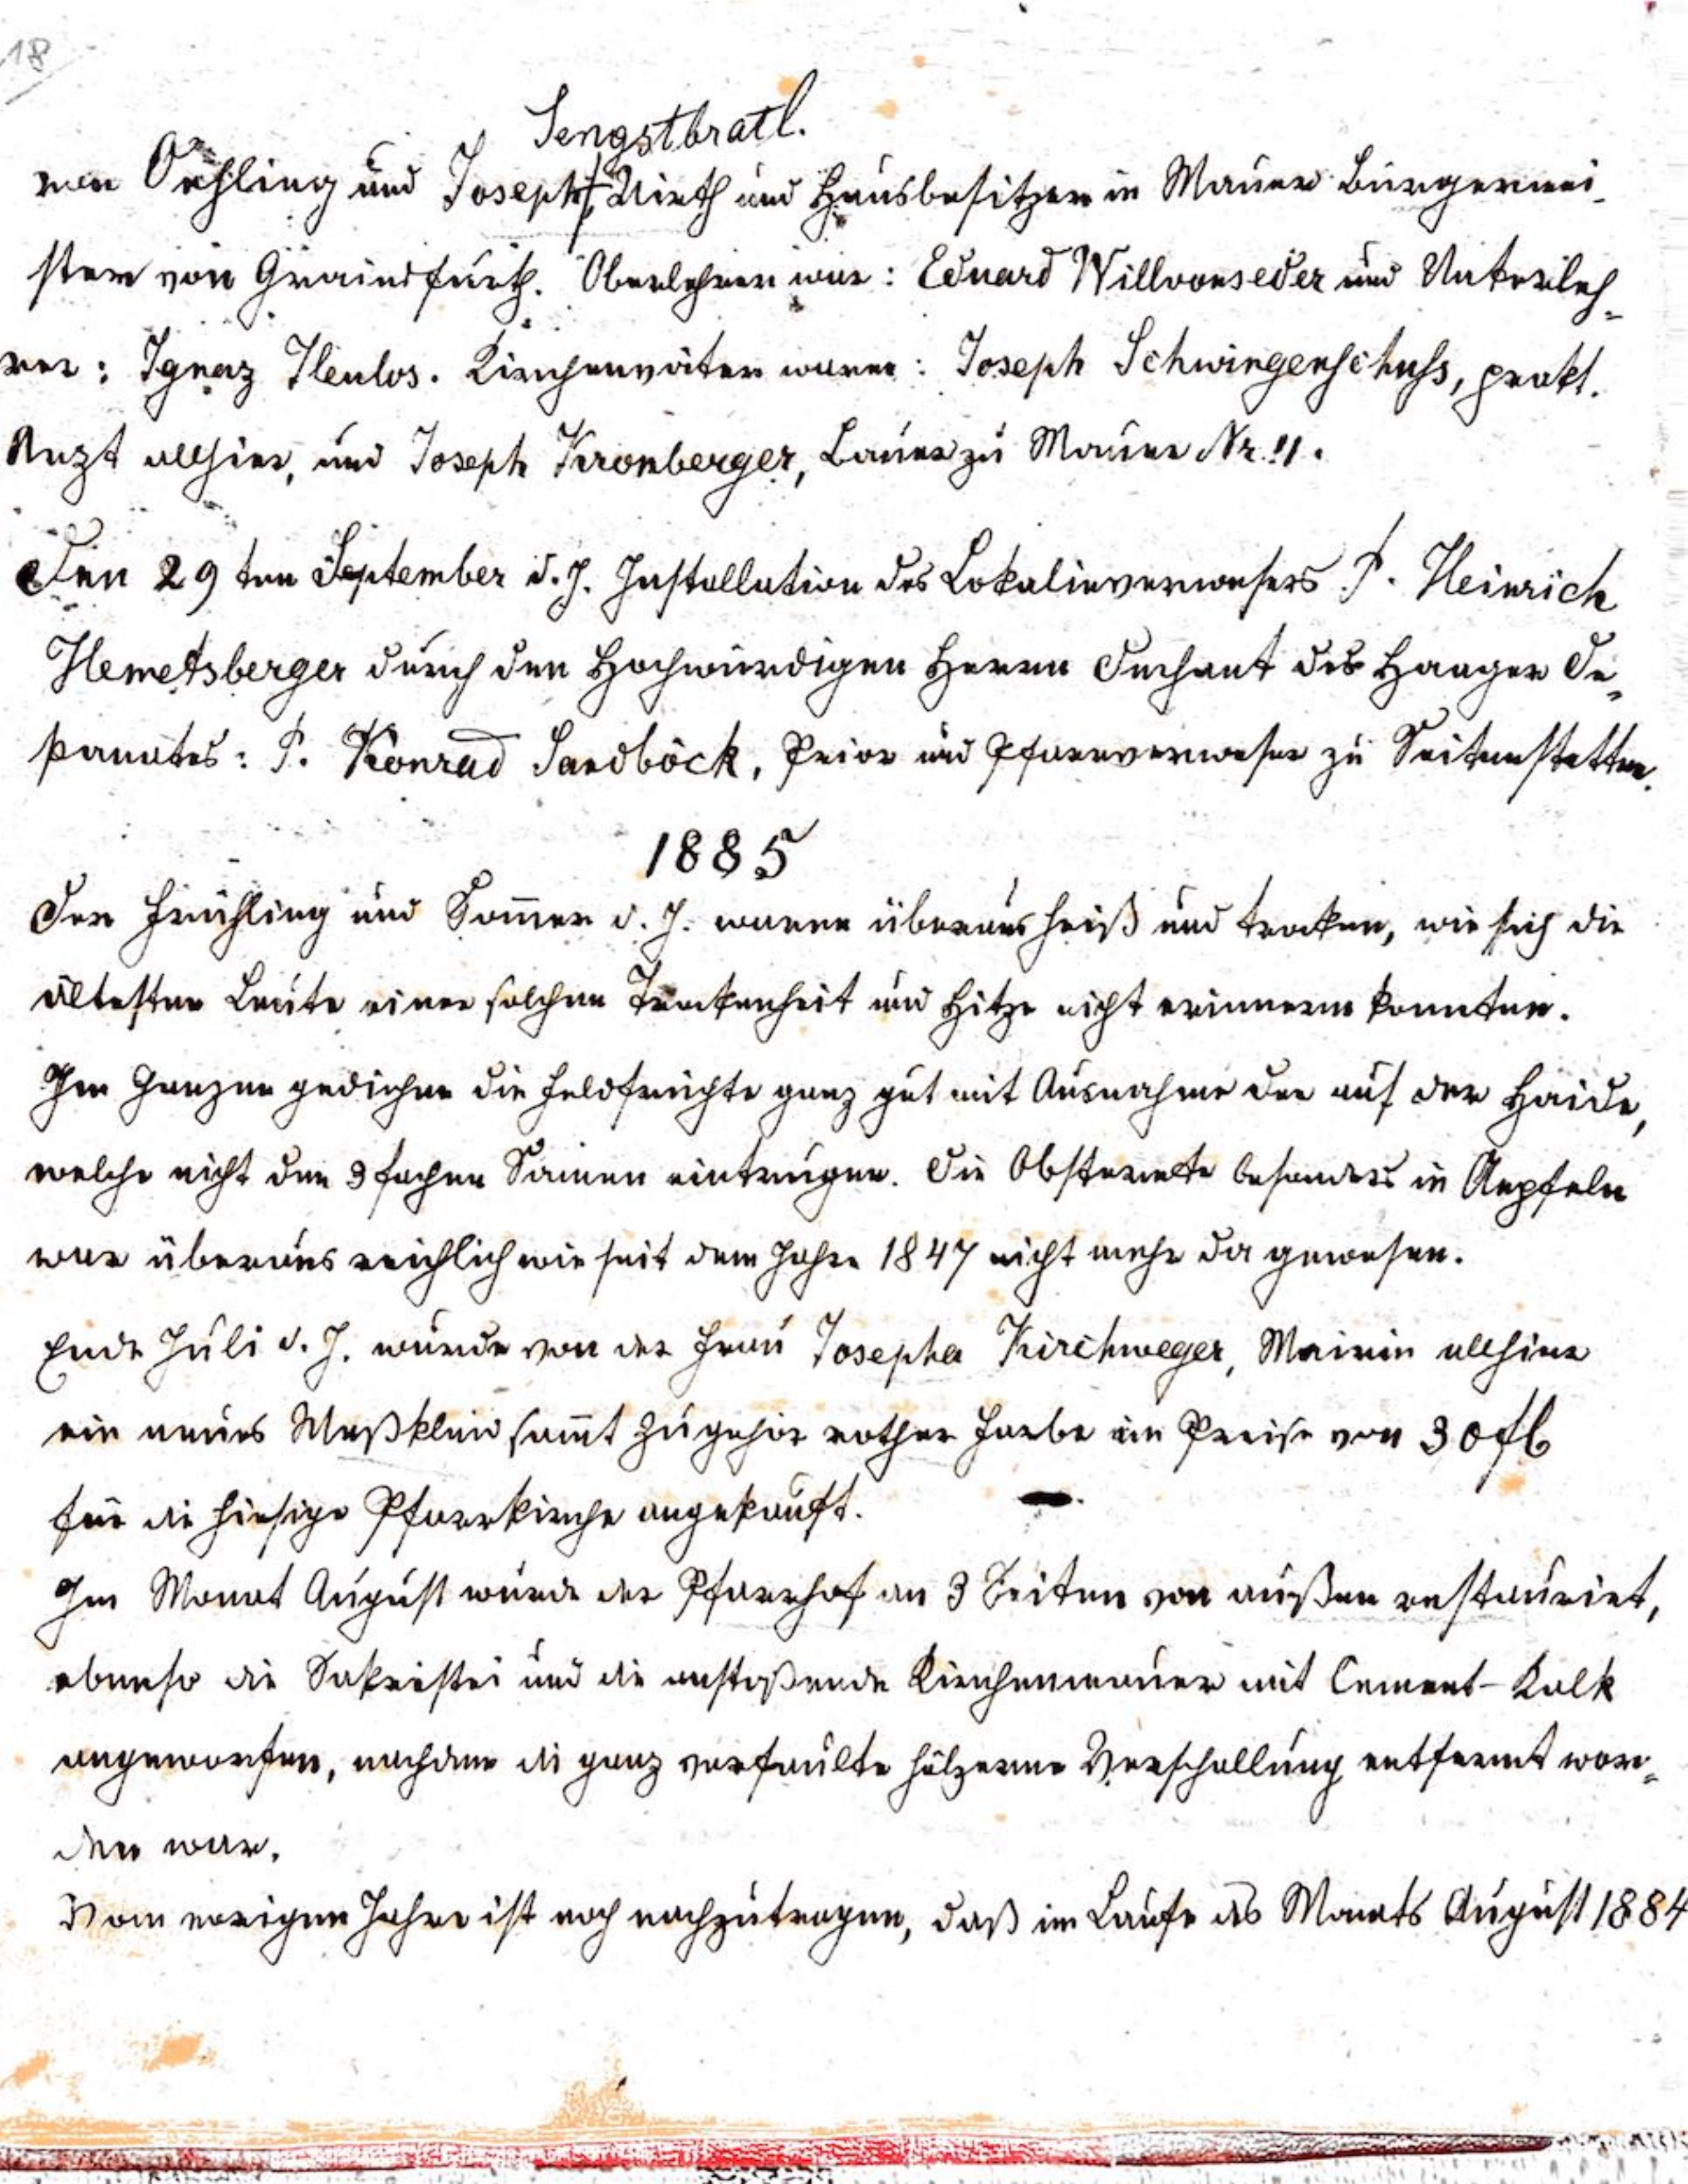 18
Sengstbratl.
von Oehling und Joseph, Wirth und Hausbesitzer in Mauer Bürgermei-
ster von Grainsfurth. Oberlehrer war: Eduard Willvonseder und Unterleh-
rer: Ignaz Henlos. Kirchenväter waren: Joseph Schwingenschuss, prakt.
Arzt allhier, und Joseph Kronberger, Bauer zu Mauer Nr. 11.
Den 29ten September d. J. Installation des Lokalieverwesers P. Heinrich
Hemetsberger durch den Hochwürdigen Herrn Dechant des Haager De-
kanates: P. Konrad Sandböck, Prior und Pfarrverweser zu Seitenstetten.
1885
Der Frühling und Som̅er d. J. waren überaus heiß und trocken, wie sich die
ältesten Leute einer solchen Trockenheit und Hitze nicht erinnern konnten.
Im Ganzen gediehen die Feldfrüchte ganz gut mit Ausnahme der auf der Haide,
welche nicht den 3fachen Samen eintrugen. Die Obsternte besonders in Aepfeln
war überaus reichlich wie seit dem Jahre 1847 nicht mehr da gewesen.
Ende Juli d. J. wurde von der Frau Josepha Kirchweger, Mairin allhier
ein neues Meßkleid sam̅t Zugehör rother Farbe im Preise von 30 fl
für die hiesige Pfarrkirche angekauft. –
Im Monat August wurde der Pfarrhof an 3 Seiten von außen restaurirt,
ebenso die Sakristei und die anstoßende Kirchenmauer mit Cement-Kalk
angeworfen, nachdem die ganz verfaulte hölzerne Verschallung entfernt wor-
den war.
Vom vorigen Jahre ist noch nachzutragen, daß im Laufe des Monats August 1884